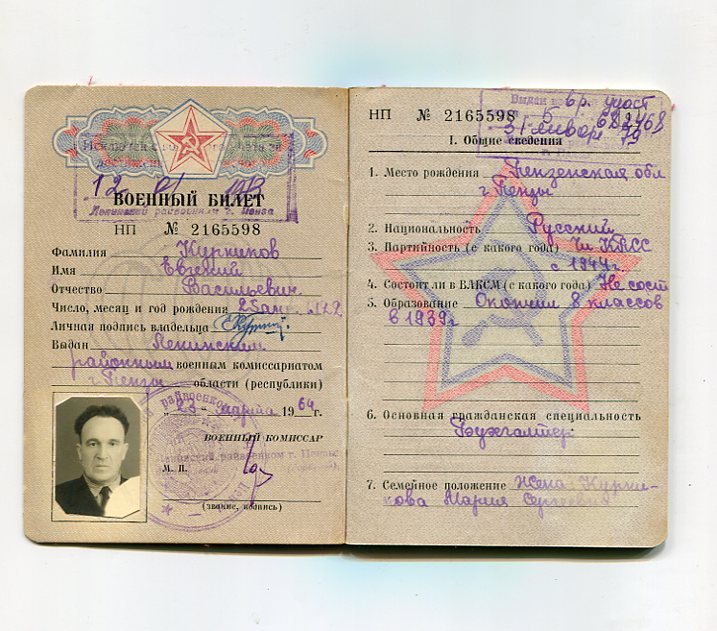 12
ВОЕННЫЙ БИЛЕТ
Ленинский райвоенком г. Пенза
НП № 2165598
Фамилия Курников
Имя Евгений
Отчество Васильевич
Число, месяц и год рождения 25
Личная подпись владельца
Выдан Ленинским
районным военным комиссариатом
г. Пензы области (республики)
„23" марта 1964 г.
ВОЕННЫЙ КОМИССАР
М. П.
(звание, подпись)
НП № 2165598
Выдан
31 января 79
I. Общие сведения
1. Место рождения Пензенская обл
г. Пензы
2. Национальность Русский
3. Партийность (с какого года) Чл. КПСС
с 1944 г.
4. Состоит ли в ВЛКСМ (с какого года) Не сост
5. Образование Окончил 8 классов
в 1939 г
6. Основная гражданская специальность
Бухгалтер
7. Семейное положение Жена Курни-
кова Мария Сергеевна